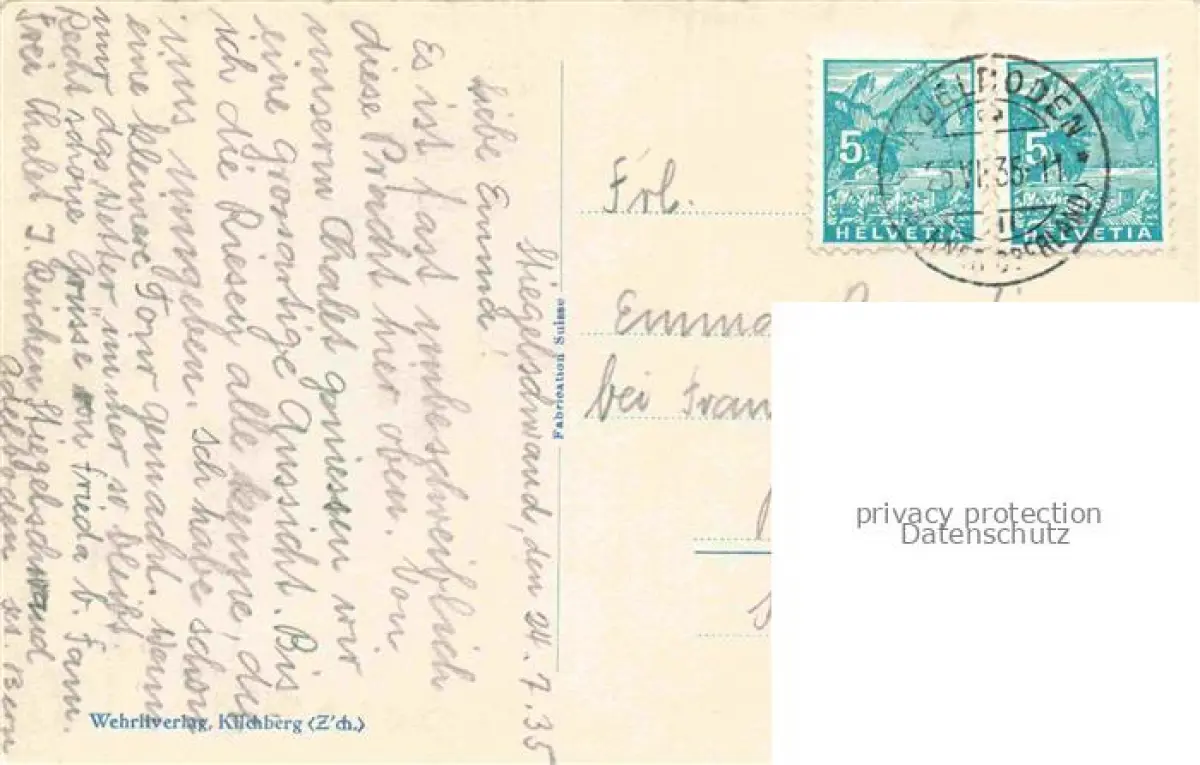 Stiegelschwand, den 24. 7. 35
Liebe Emma!
Es ist fast unbeschreiblich
diese Pracht hier oben. Von
unserm Chalet geniessen wir
eine grossartige Aussicht. Bis
ich die Riesen alle kenne, die
uns umgeben. Ich habe schon
eine kleinere Tour gemacht. Wenn
nur das Wetter immer so bleibt.
Recht schöne Grüsse von Frieda b. Fam.
Frei Chalet J. Stiegelschwand
Adelboden Kt. Bern
Wehrliverlag, Kilchberg (Z'ch.)
Fabrication Suisse
Frl.
Emma
bei Frau
5
HELVETIA
5
HELVETIA
ADELBODEN
25.VII.35-11
(BERNER OBERLAND)
privacy protection
Datenschutz